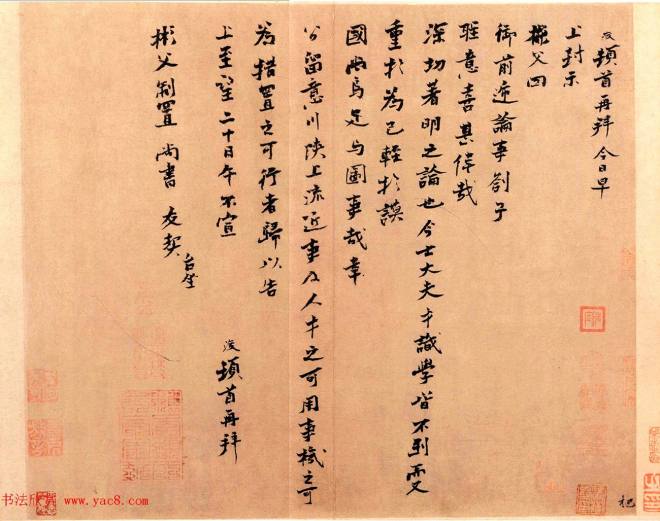 浚頓首再拜今日早
上封示
彬父回
御前逆論事劄子
甚偉哉
深切著明之論也今士大夫才識學皆不到而又
重於為己輕於謀
國此烏足与圖事哉幸
公留意川陝上流近事及人才之可用事機之可
為措置之可行者歸以告
上至望二十日午不宣
浚頓首再拜
彬父制置尚書友契
台坐
書法欣賞 www.yac8.com